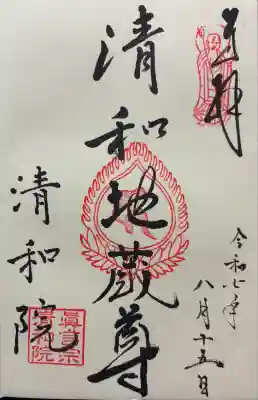 奉拝
令和七年
八月十五日
清和地蔵尊
清和院
眞言宗
清和院